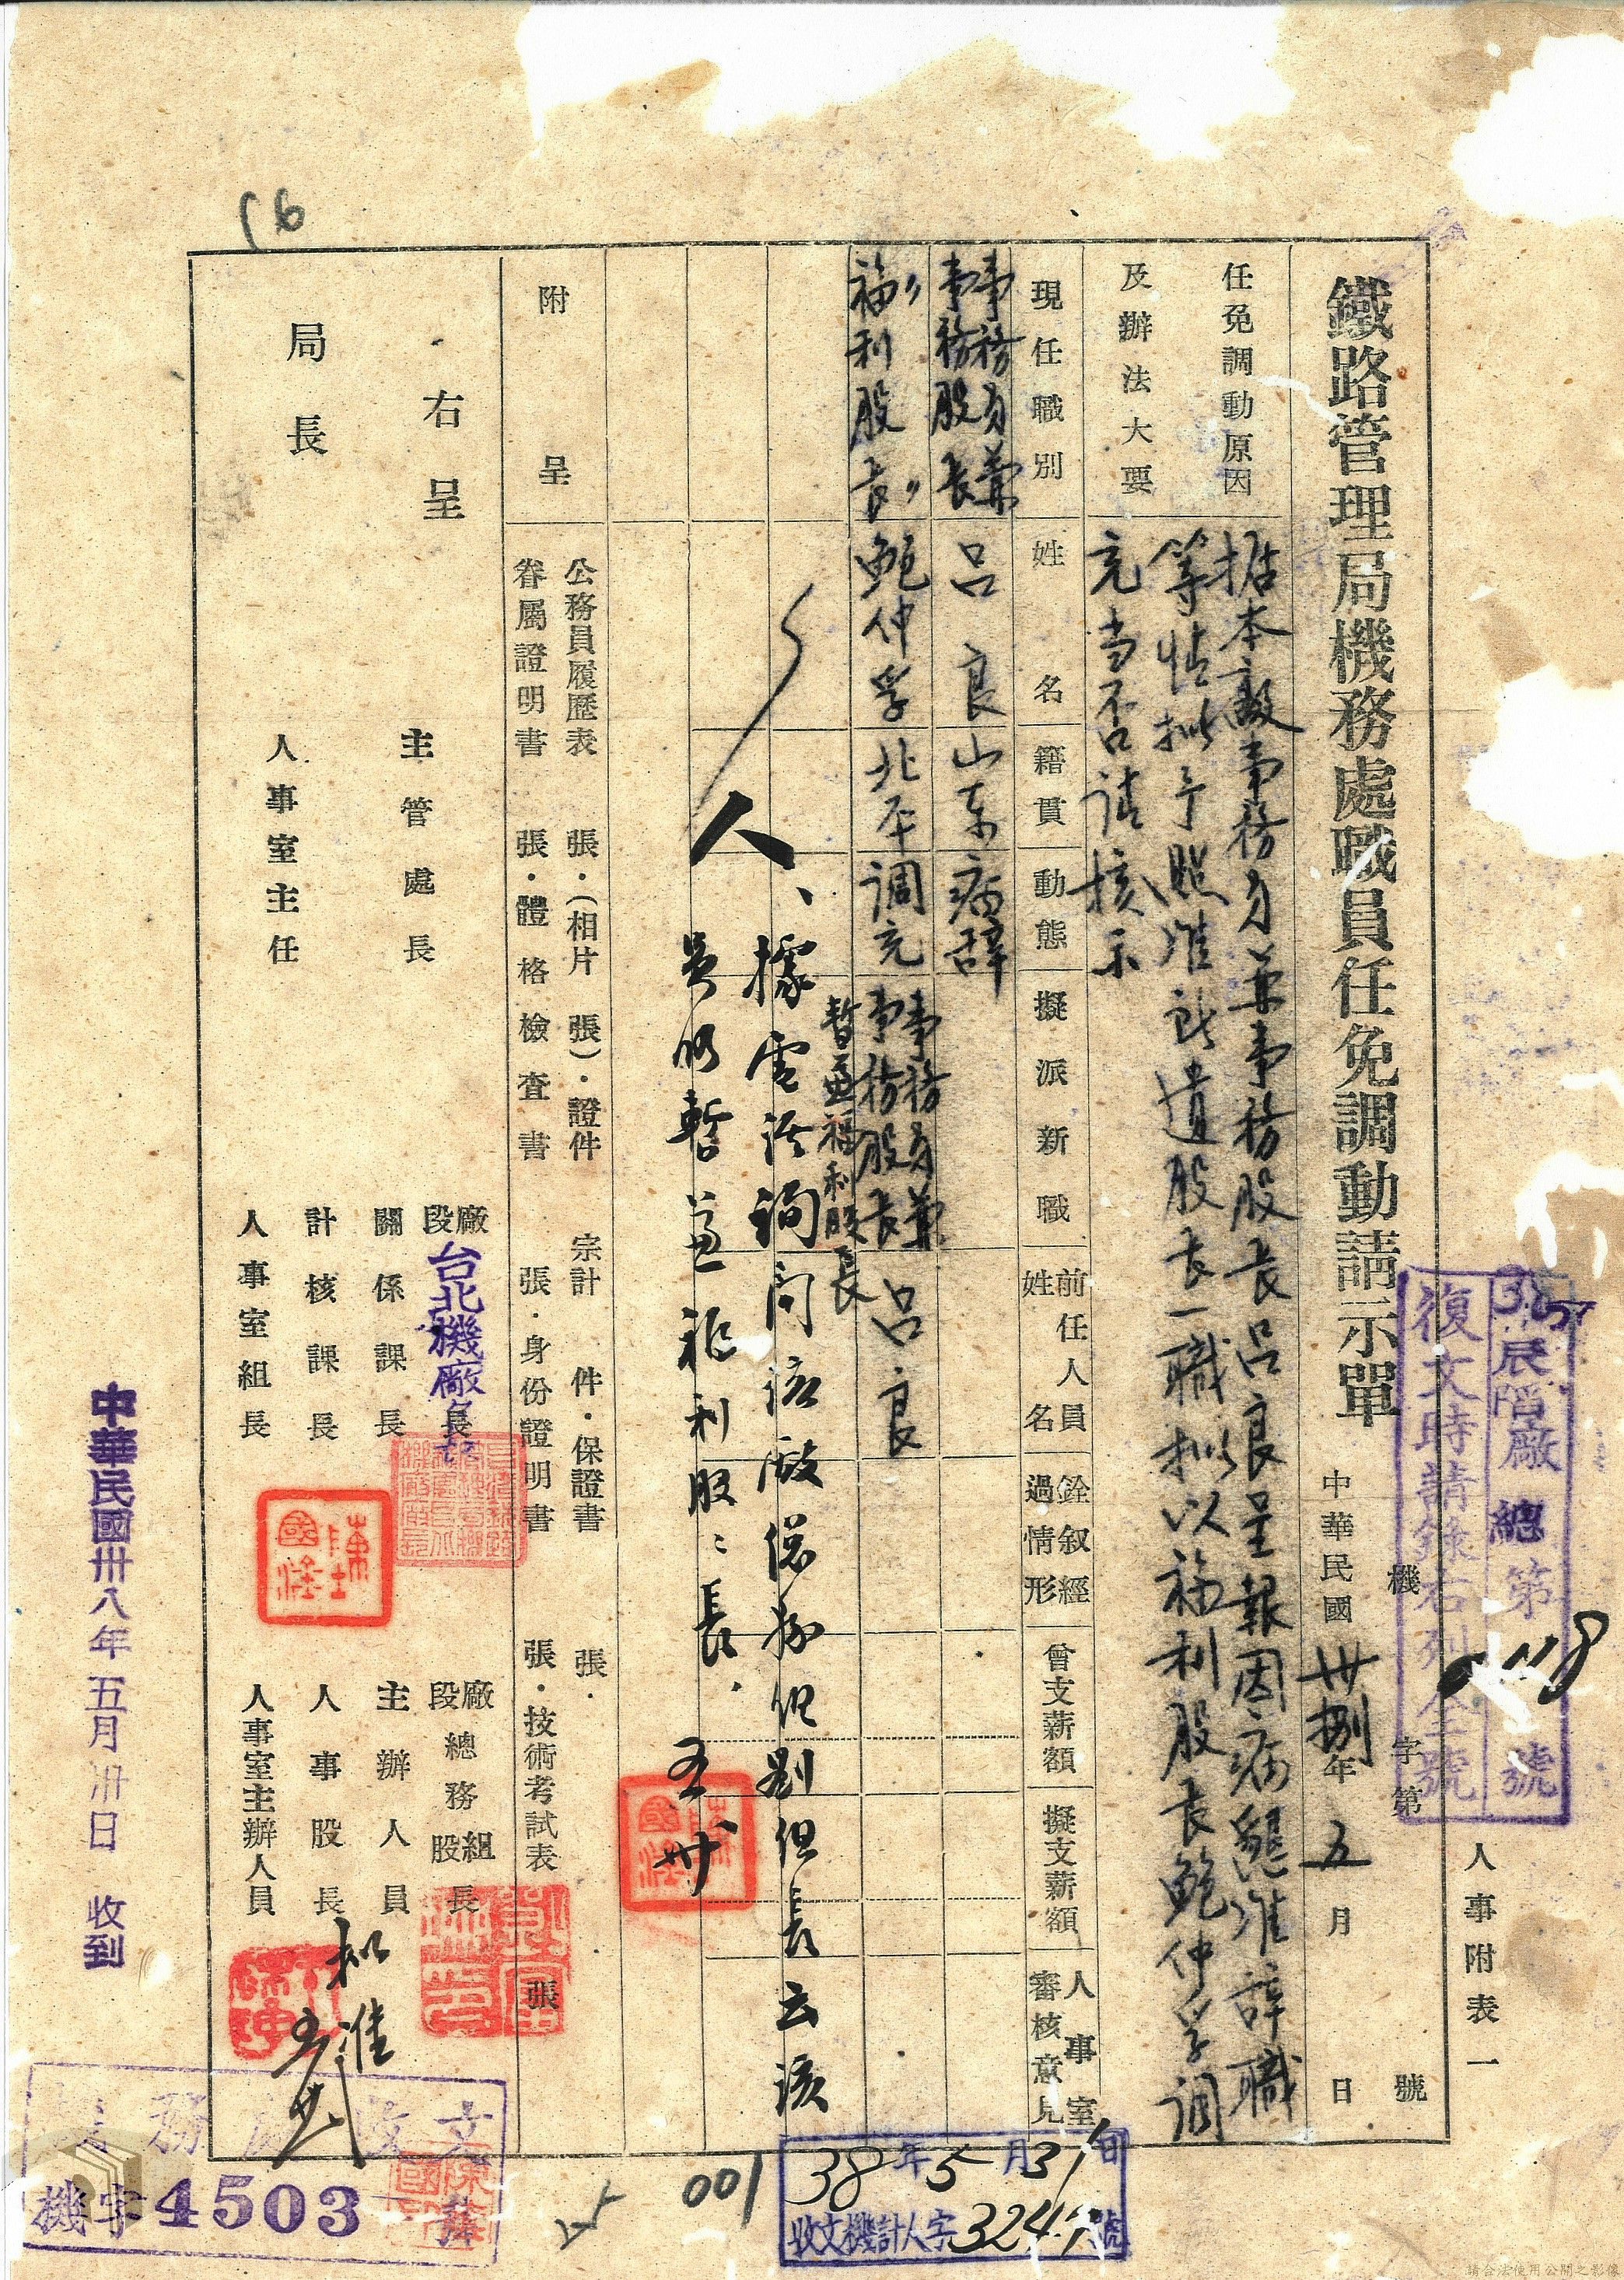 人事附表一
鐵路管理局機務處職員任免調動請示單
機字第號
中華民國卅捌年五月日
復文時請錄右列全號
辰 廠總第118號
任免調動原因及辦法大要
据本廠事務員兼事務股長呂良呈報因病懇准辞職
等情拟予照准所遺股長一職拟以福利股長鮑仲孚調
充当否请核示
現任職別
姓名
籍貫
動態
擬派新職
前任人員姓名
銓叙經過情形
曾支薪額
擬支薪額
人事室審核意見
事務員兼事務股長
呂良
山东
病辞
〃福利股長〃
鮑仲孚
北平
調充
事務員兼事務股長
暫兼福利股長
呂良
人、據電话詢問該廠
暫兼福利股〻長.
五 卅
附呈
公務員履歷表 張·(相片 張)·證件 宗計 件·保證書 張·
眷屬證明書 張·體格檢查書 張·身份證明書 張·技術考試表 張
右呈
局長
主管處長
人事室主任
廠段台北機廠長
關係課長
計核課長
人事室組長
廠段總務組股長
主辦人員
人事股長
人事室主辦人員
拟准
中華民國卅八年五月卅日收到
機字4503號
38年5月31日
收文機計人字324 號
001
16
請合法使用公開之影像